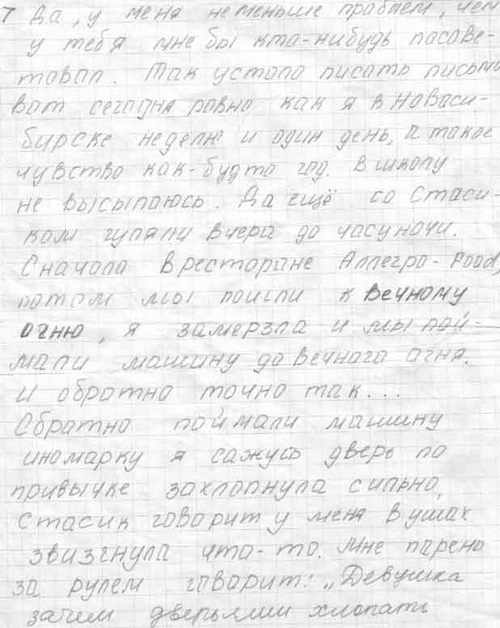 7 Да, у меня не меньше проблем, чем
у тебя мне бы кто-нибудь посове-
товал. Так устала писать письма
вот сегодня ровно как я в Новоси-
бирске неделю и один день, а такое
чувство как-будто год. В школу
не высыпаюсь. Да ещё со Стаси-
ком гуляли вчера до часу ночи.
Сначала в ресторане Аллегро-Food,
потом мы пошли к Вечному
огню, я замерзла и мы пой-
мали машину до Вечного огня.
И обратно точно так...
Обратно поймали машину
иномарку я сажусь дверь по
привычке захлопнула сильно,
Стасик говорит у меня в ушах
звизгнула что-то. Мне парень
за рулем говорит: „Девушка
зачем дверьями хлопать